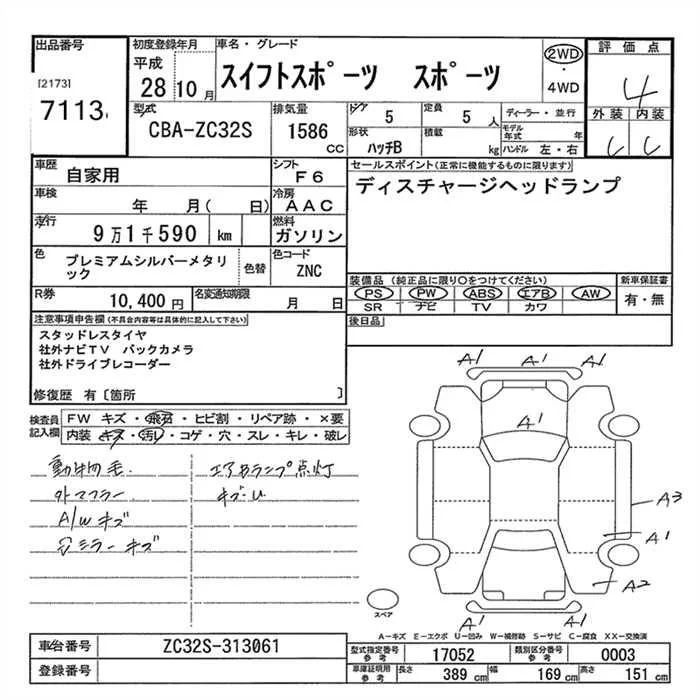 出品番号
[2173]
7113
初度登録年月
平成
28 10月
車名・グレード
スイフトスポーツ スポーツ
2WD
・
4WD
評価点
4
外装 内装
C C
型式
CBA-ZC32S
排気量
1586
CC
ドア 5
定員 5 人
形状 ハッチB
積載 kg
ディーラー・並行
モデル年式 年
ハンドル 左・右
車歴 自家用
シフト F6
車検 年 月( 日)
冷房 AAC
走行 9万1千590 km
燃料 ガソリン
色 プレミアムシルバーメタリック
色替
色コード ZNC
R券 10,400円
名変通知期限 月 日
セールスポイント(正常に機能するものに限ります)
ディスチャージヘッドランプ
装備品 (純正品に限り○をつけてください)
新車保証書
PS PW ABS エアB AW
SR ナビ TV カワ
有・無
後日品
注意事項申告欄(不具合内容等は具体的に記入して下さい)
スタッドレスタイヤ
社外ナビTV バックカメラ
社外ドライブレコーダー
修復歴 有〔箇所 〕
検査員記入欄
FW キズ・飛石・ヒビ割・リペア跡・×要
内装 キズ・汚レ・コゲ・穴・スレ・キレ・破レ
動物毛
外マフラー
A/W キズ
ミラーキズ
エアBランプ点灯
キズ・U
A1 A1 A1
A1
A3
A1
A2
A1 A1
スペア
A-キズ E-エクボ U-凹み W-補修跡 S-サビ C-腐食 XX-交換済
車台番号 ZC32S-313061
登録番号
型式指定番号 参考 17052
類別区分番号 参考 0003
車庫証明用 参考 長さ 389 cm 幅 169 cm 高さ 151 cm